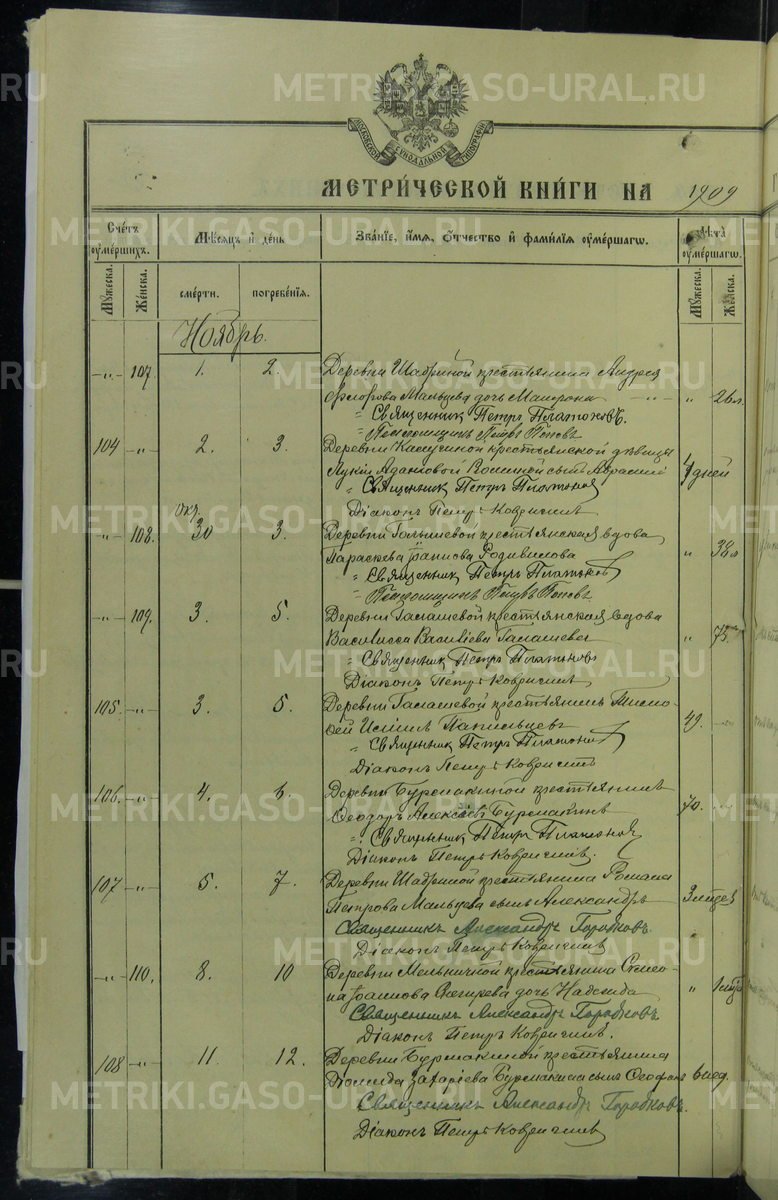 МОСКОВСКОЙ СѴНОДАЛЬНОЙ ТИПОГРАФІИ
МЕТРИ́ЧЕСКОЙ КНИ́ГИ НА 1909
Счетъ ѹмершихъ. Мѣсяцъ и день Званїе, имя, Отчество и фамилїя ѹмершагω. Лѣта ѹмершагω.
Мужеска. Женска. смерти. погребенїя. Мужеска. Женска.
Ноябрь.
—„— 107. 1. 2. Деревни Шадриной крестьянина Андрея
Флорова Мальцева дочь Матрона —„— „ 26 л.
„ Священникъ Петръ Платоновъ.
„ Псаломщикъ Петръ Поповъ
104 —„— 2. 3. Деревни крестьянской дѣвицы
Лукіи Адамовой сынъ 7 дней
„ Священникъ Петръ Платоновъ
Діаконъ Петръ Ковригинъ
—„— 108. Окт. 30 3. Деревни Голышевой крестьянская вдова
Параскева Родивилова „ 38 л
„ Священникъ Петръ Платоновъ
„ Псаломщикъ Петръ Поповъ
—„— 109. 3. 5. Деревни Галашевой крестьянская вдова
Василисса Василіева Галашева „ 75.
„ Священникъ Петръ Платоновъ
Діаконъ Петръ Ковригинъ
105. —„— 3. 5. Деревни Галашевой крестьянинъ Тимо-
фей Папильцевъ 49. —„—
„ Священникъ Петръ Платоновъ
Діаконъ Петръ Ковригинъ
106. —„— 4. 6. Деревни Бурмакиной крестьянинъ
Ѳеодоръ Алексѣевъ Бурмакинъ 70. —„—
„ Священникъ Петръ Платоновъ
Діаконъ Петръ Ковригинъ.
107 —„— 5. 7. Деревни Шадриной крестьянина Романа
Петрова Мальцева сынъ Александръ 3 мѣсяц
Священникъ Александръ Горбковъ.
Діаконъ Петръ Ковригинъ
—„— 110. 8. 10 Деревни Мельничной крестьянина Симео-
на Іоаннова дочь Надежда „
Священникъ Александръ Горбковъ
Діаконъ Петръ Ковригинъ.
108 —„— 11. 12. Деревни Бурмакиной крестьянина
Діомида Захаріева Бурмакина сынъ Ѳеофанъ 6 нед.
Священникъ Александръ Горбковъ.
Діаконъ Петръ Ковригинъ
METRIKI.GASO-URAL.RU